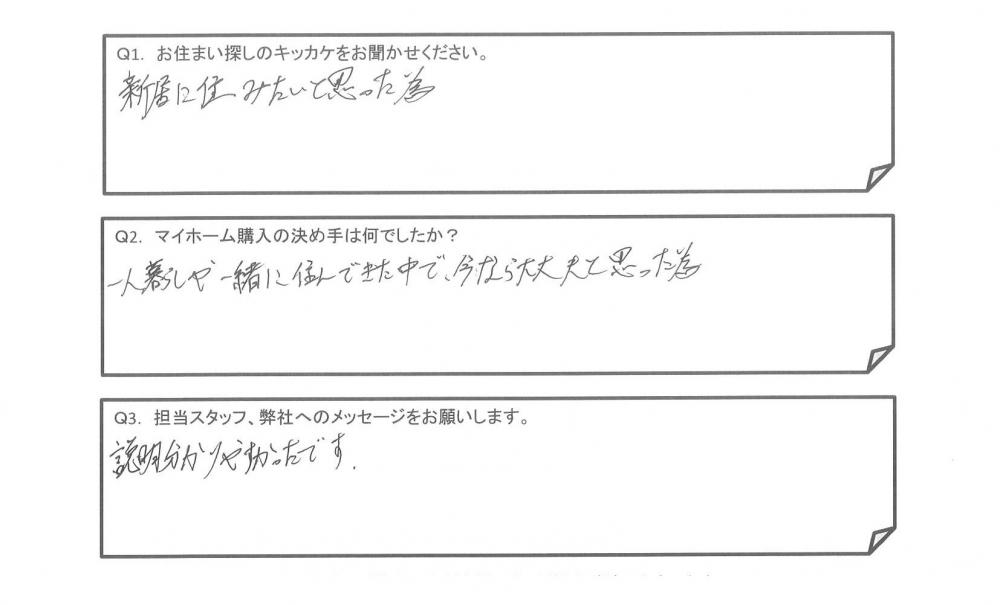 Q1. お住まい探しのキッカケをお聞かせください。
新居に住みたいと思った為
Q2. マイホーム購入の決め手は何でしたか？
一人暮らしや一緒に住んできた中で、今なら大丈夫と思った為
Q3. 担当スタッフ、弊社へのメッセージをお願いします。
説明分かりやすかったです.